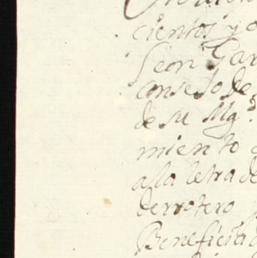 cientos y o
Leon Gar
consejo de
de su Mg.
miento
a la letra de
derrotero
Beneficia